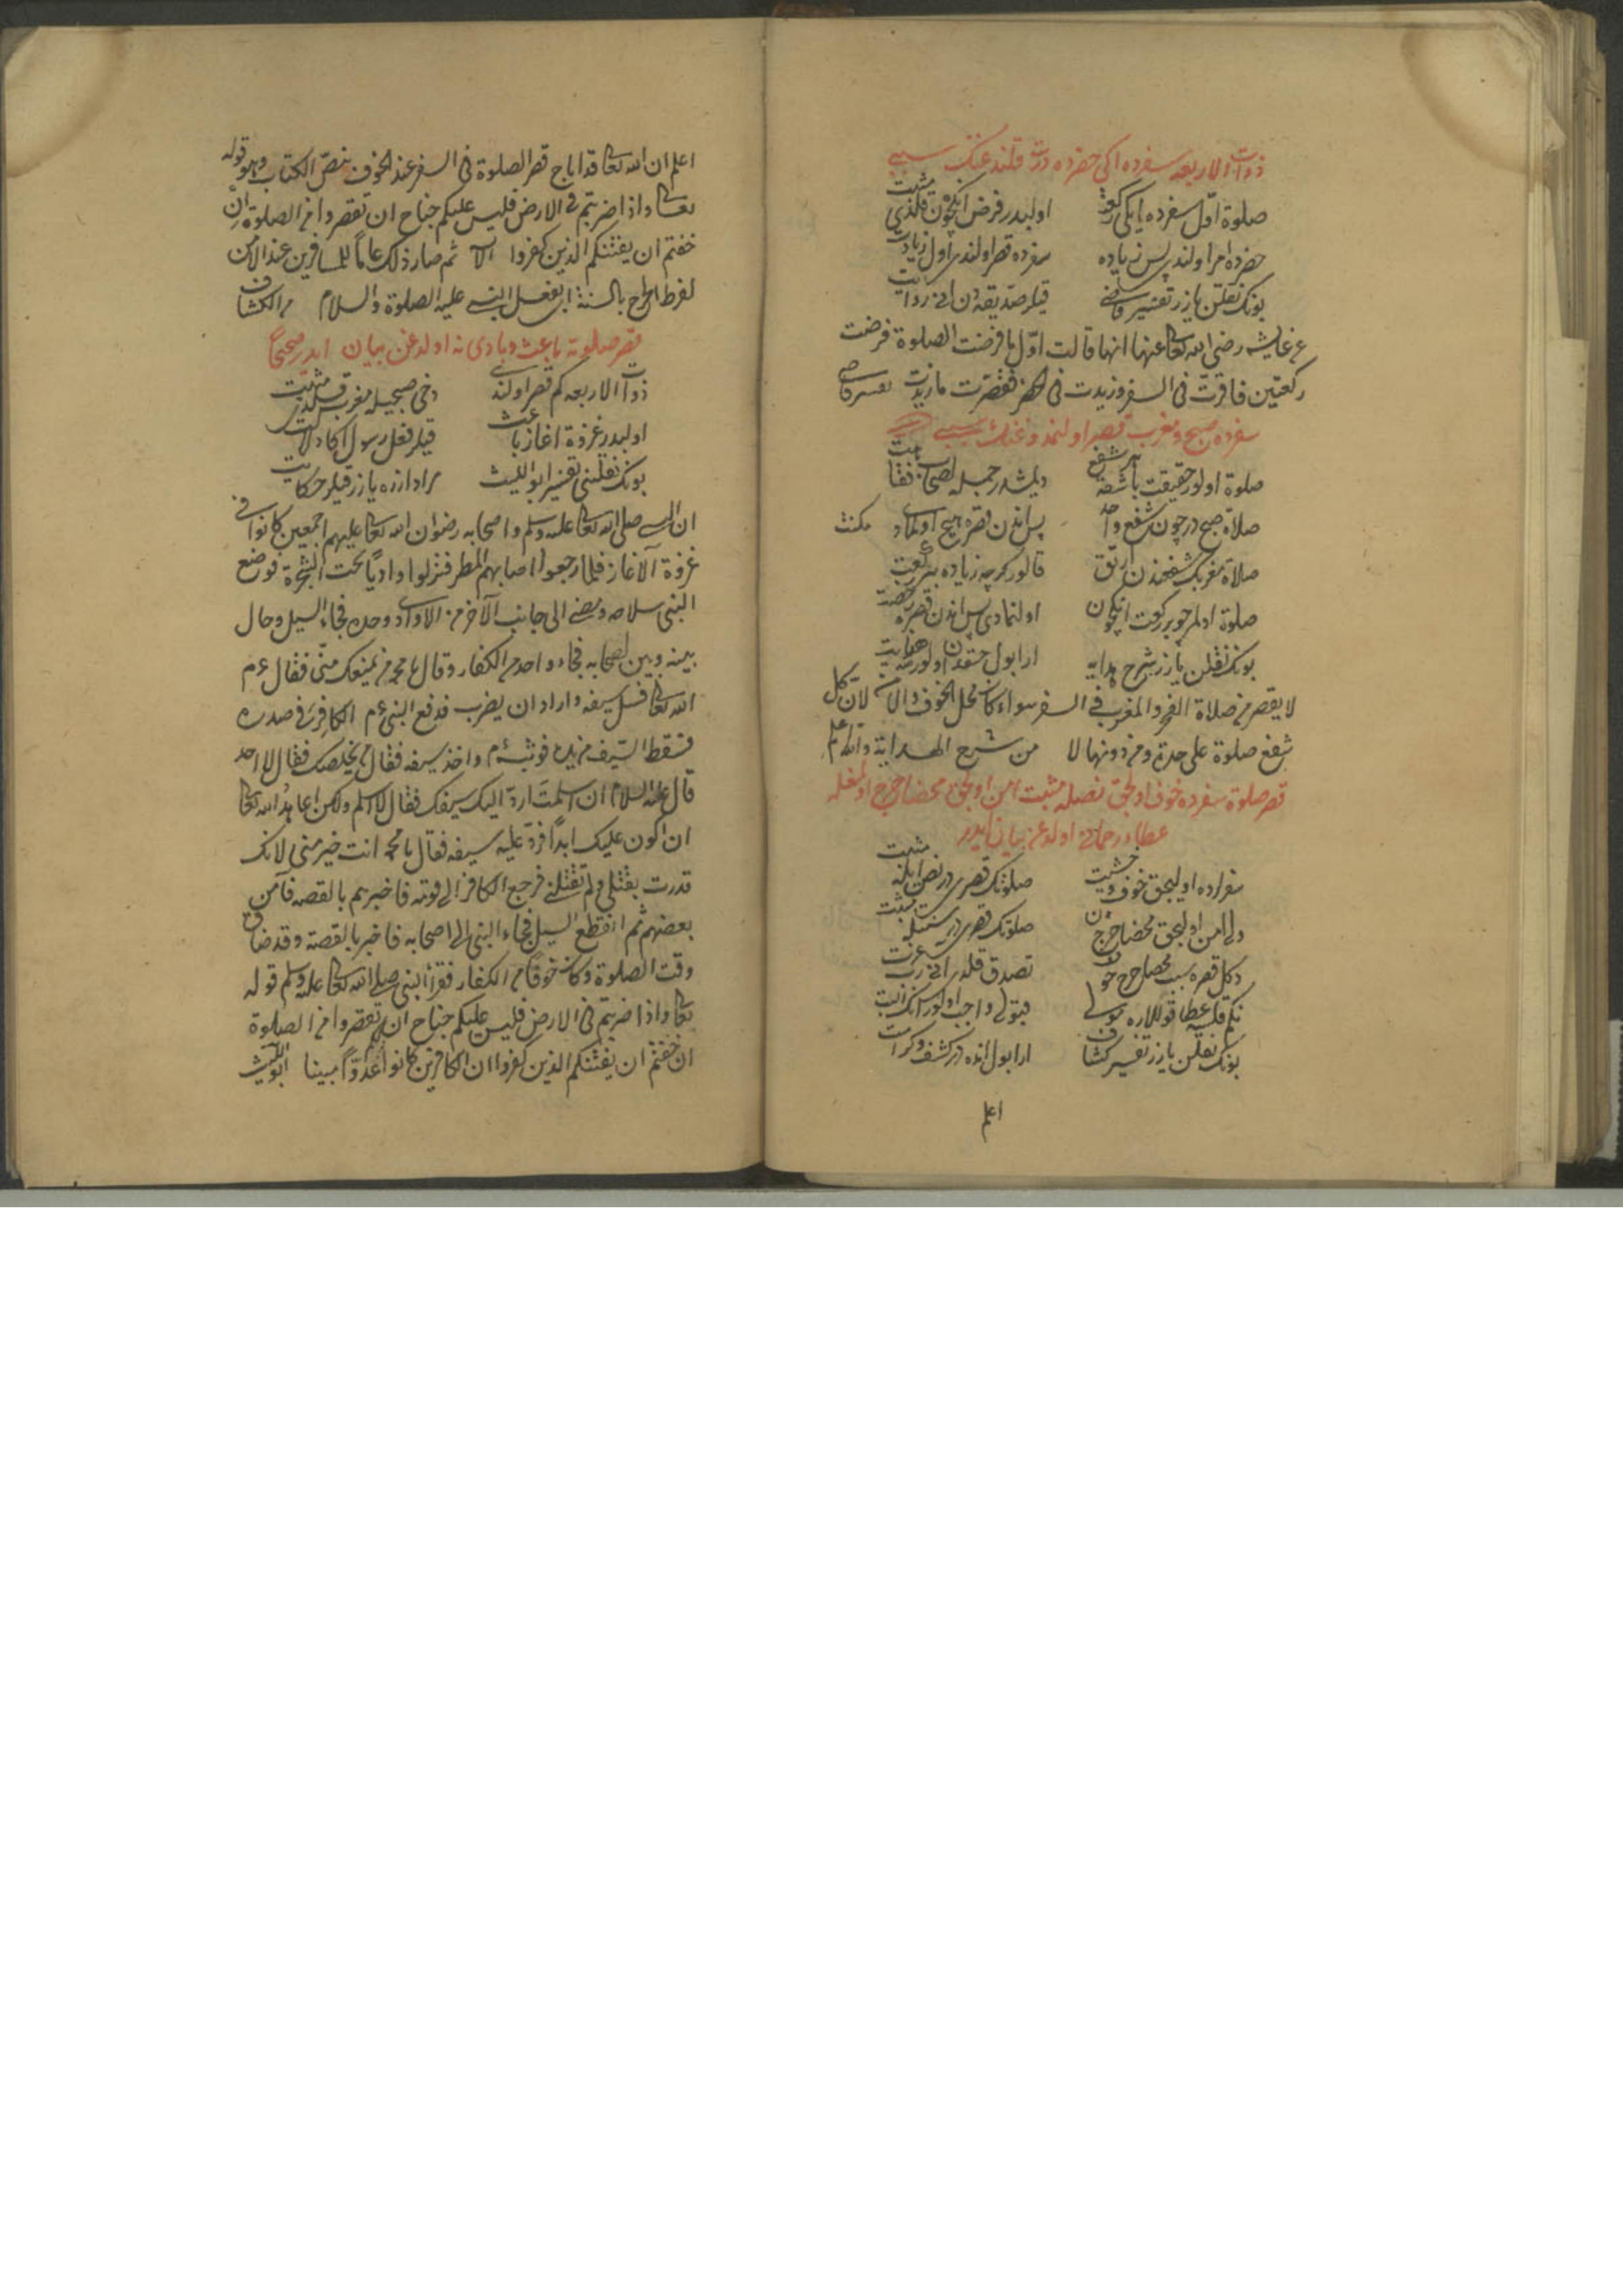 ذوات الاربعه سفرده ایکی حضرده درت قلندغنك سببی
صلوة اول سفرده ایکی رکعت اولیدر فرض انکچون قلندی مثبت
حضرده امر اولندی پس زیاده سفرده قصر اولندی اول زیادت
بونك نقلن یازر تفسیر قاضی قیلر صدیقه دن انی روایت
عن عایشه رضی الله تعالی عنها انها قالت اول ما فرضت الصلوة فرضت
رکعتین فاقرت فی السفر وزیدت فی الحضر فقصرت ما زیدت تفسیر قاضی
سفرده صبح و مغرب قصر اولنمدوغنك سببی
صلوة اولور حقیقت باشفع دیمشدر جمله اصحاب فقاهت
صلاة صبح درچون شفع واحد پس اندن قصره هیچ اولمادی مکنت
صلاة مغربك شفعندن ارتق قالور کرچه زیاده بر رکعت
صلوة اولمز چو بر رکعت انکچون اولنمادی پس اندن قصره رخصت
بونك نقلن یازر شرح هدایه ارا بول
لا یقصر من صلاة الفجر والمغرب فی السفر سواء كان محل الخوف والامن لان كل
شفع صلوة علی حدة وما دونها لا من شرح الهداية والله اعلم
قصر صلوة سفرده خوف اولیجق نصله مثبت امن اولیجق محضا حرج اولمغله
عطاء رحمانی اولدوغن بیان ایدر
سفرده اولیجق خوف وخشیت صلوتك قصری در نص ایله مثبت
ولی امن اولیجق محضا حرجدن صلوتك قصری در سنتله مثبت
دکل قصره سبب محضا حرج تصدق قلدی انی رب عزت
نکم قلسه عطا قوللاره مولی قبولی واجب اولور انك البت
بونك نقلن یازر تفسیر کشاف ارا بول انده در کشف و کرامت
اعلم
اعلم ان الله تعالی قد اباح قصر الصلوة فی السفر عند الخوف بنص الکتاب وهو قوله
تعالی واذا ضربتم فی الارض فلیس علیکم جناح ان تقصروا من الصلوة ان
خفتم ان یفتنکم الذین کفروا الآیة ثم صار ذلك عاما للمسافرین عند الامن
لفرط الحرج بالسنة ای بفعل النبی علیه الصلوة والسلام من الکشاف
قصر صلوته باعث و بادی نه اولدوغن بیان ایدر صحیحا
ذوات الاربعه کم قصر اولندی دخی صبحیله مغرب قلدی مثبت
اولیدر غزوة اغاز باعث قیلر فعل رسول اکا دلالت
بونك نقلنی تفسیر ابو اللیث مراد ازره یازر قیلر حکایت
ان النبی صلی الله تعالی علیه وسلم واصحابه رضوان الله تعالی علیهم اجمعین کانوا فی
غزوة الاغاز فلما رجعوا اصابهم المطر فنزلوا وادیا تحت الشجرة فوضع
النبی سلاحه ومضی الی جانب الآخر من الوادی وحده فجاء السیل وحال
بینه وبین اصحابه فجاء واحد من الکفار وقال یا محمد من یمنعك منی فقال عم
الله تعالی فسل سیفه واراد ان یضرب فدفع النبی عم الکافر فی صدره
فسقط السیف من یده فوثب عم واخذ سیفه فقال من یخلصك فقال لا احد
قال علیه السلام ان اسلمت ارد الیك سیفك فقال لا اسلم ولکن اعاهد الله تعالی
ان لا اکون علیك ابدا فرد علیه سیفه فقال یا محمد انت خیر منی لانك
قدرت بقتلی ولم تقتلنی فرجع الکافر الی قومه فاخبرهم بالقصه فآمن
بعضهم ثم انقطع السیل فجاء النبی الی اصحابه فاخبر بالقصة وقد ضاق
وقت الصلوة وکان خوفا من الکفار فقرأ النبی صلی الله تعالی علیه وسلم قوله
تعالی واذا ضربتم فی الارض فلیس علیکم جناح ان تقصروا من الصلوة
ان خفتم ان یفتنکم الذین کفروا ان الکافرین کانوا لکم عدوا مبینا ابو اللیث